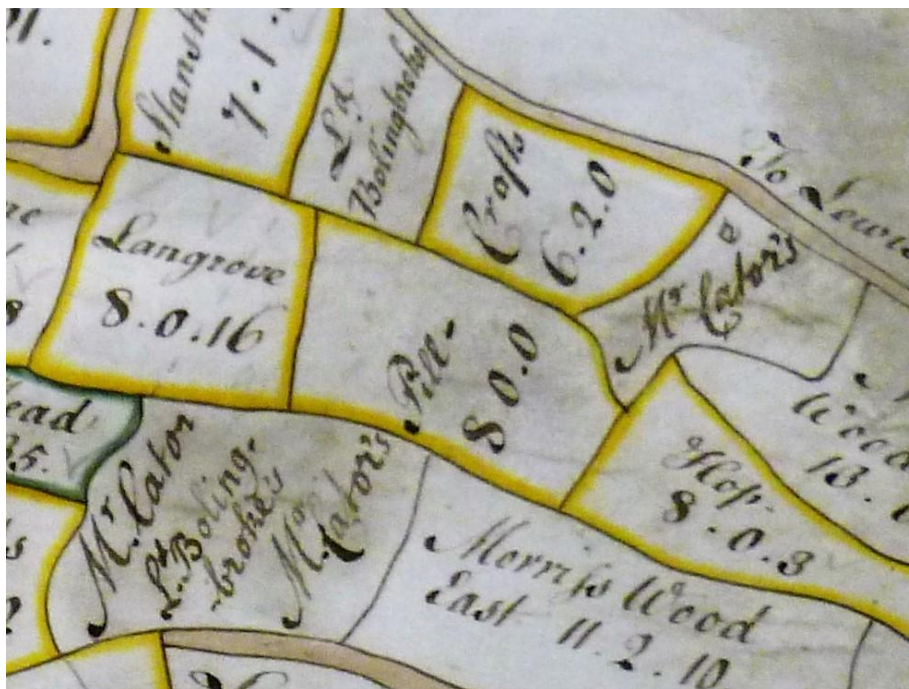 7.1.
Ld
Bolingbroke
Crofts
6.2.0
To Lewis
Langrove
8.0.16
Pill-
8 0.0
Mr Cator's
Hop-
8.0.3
Wood
13.
ead
35.
Mr Cator
Ld Boling-
-broke's
Mr Cator's
Morriss Wood
East 11.2.10